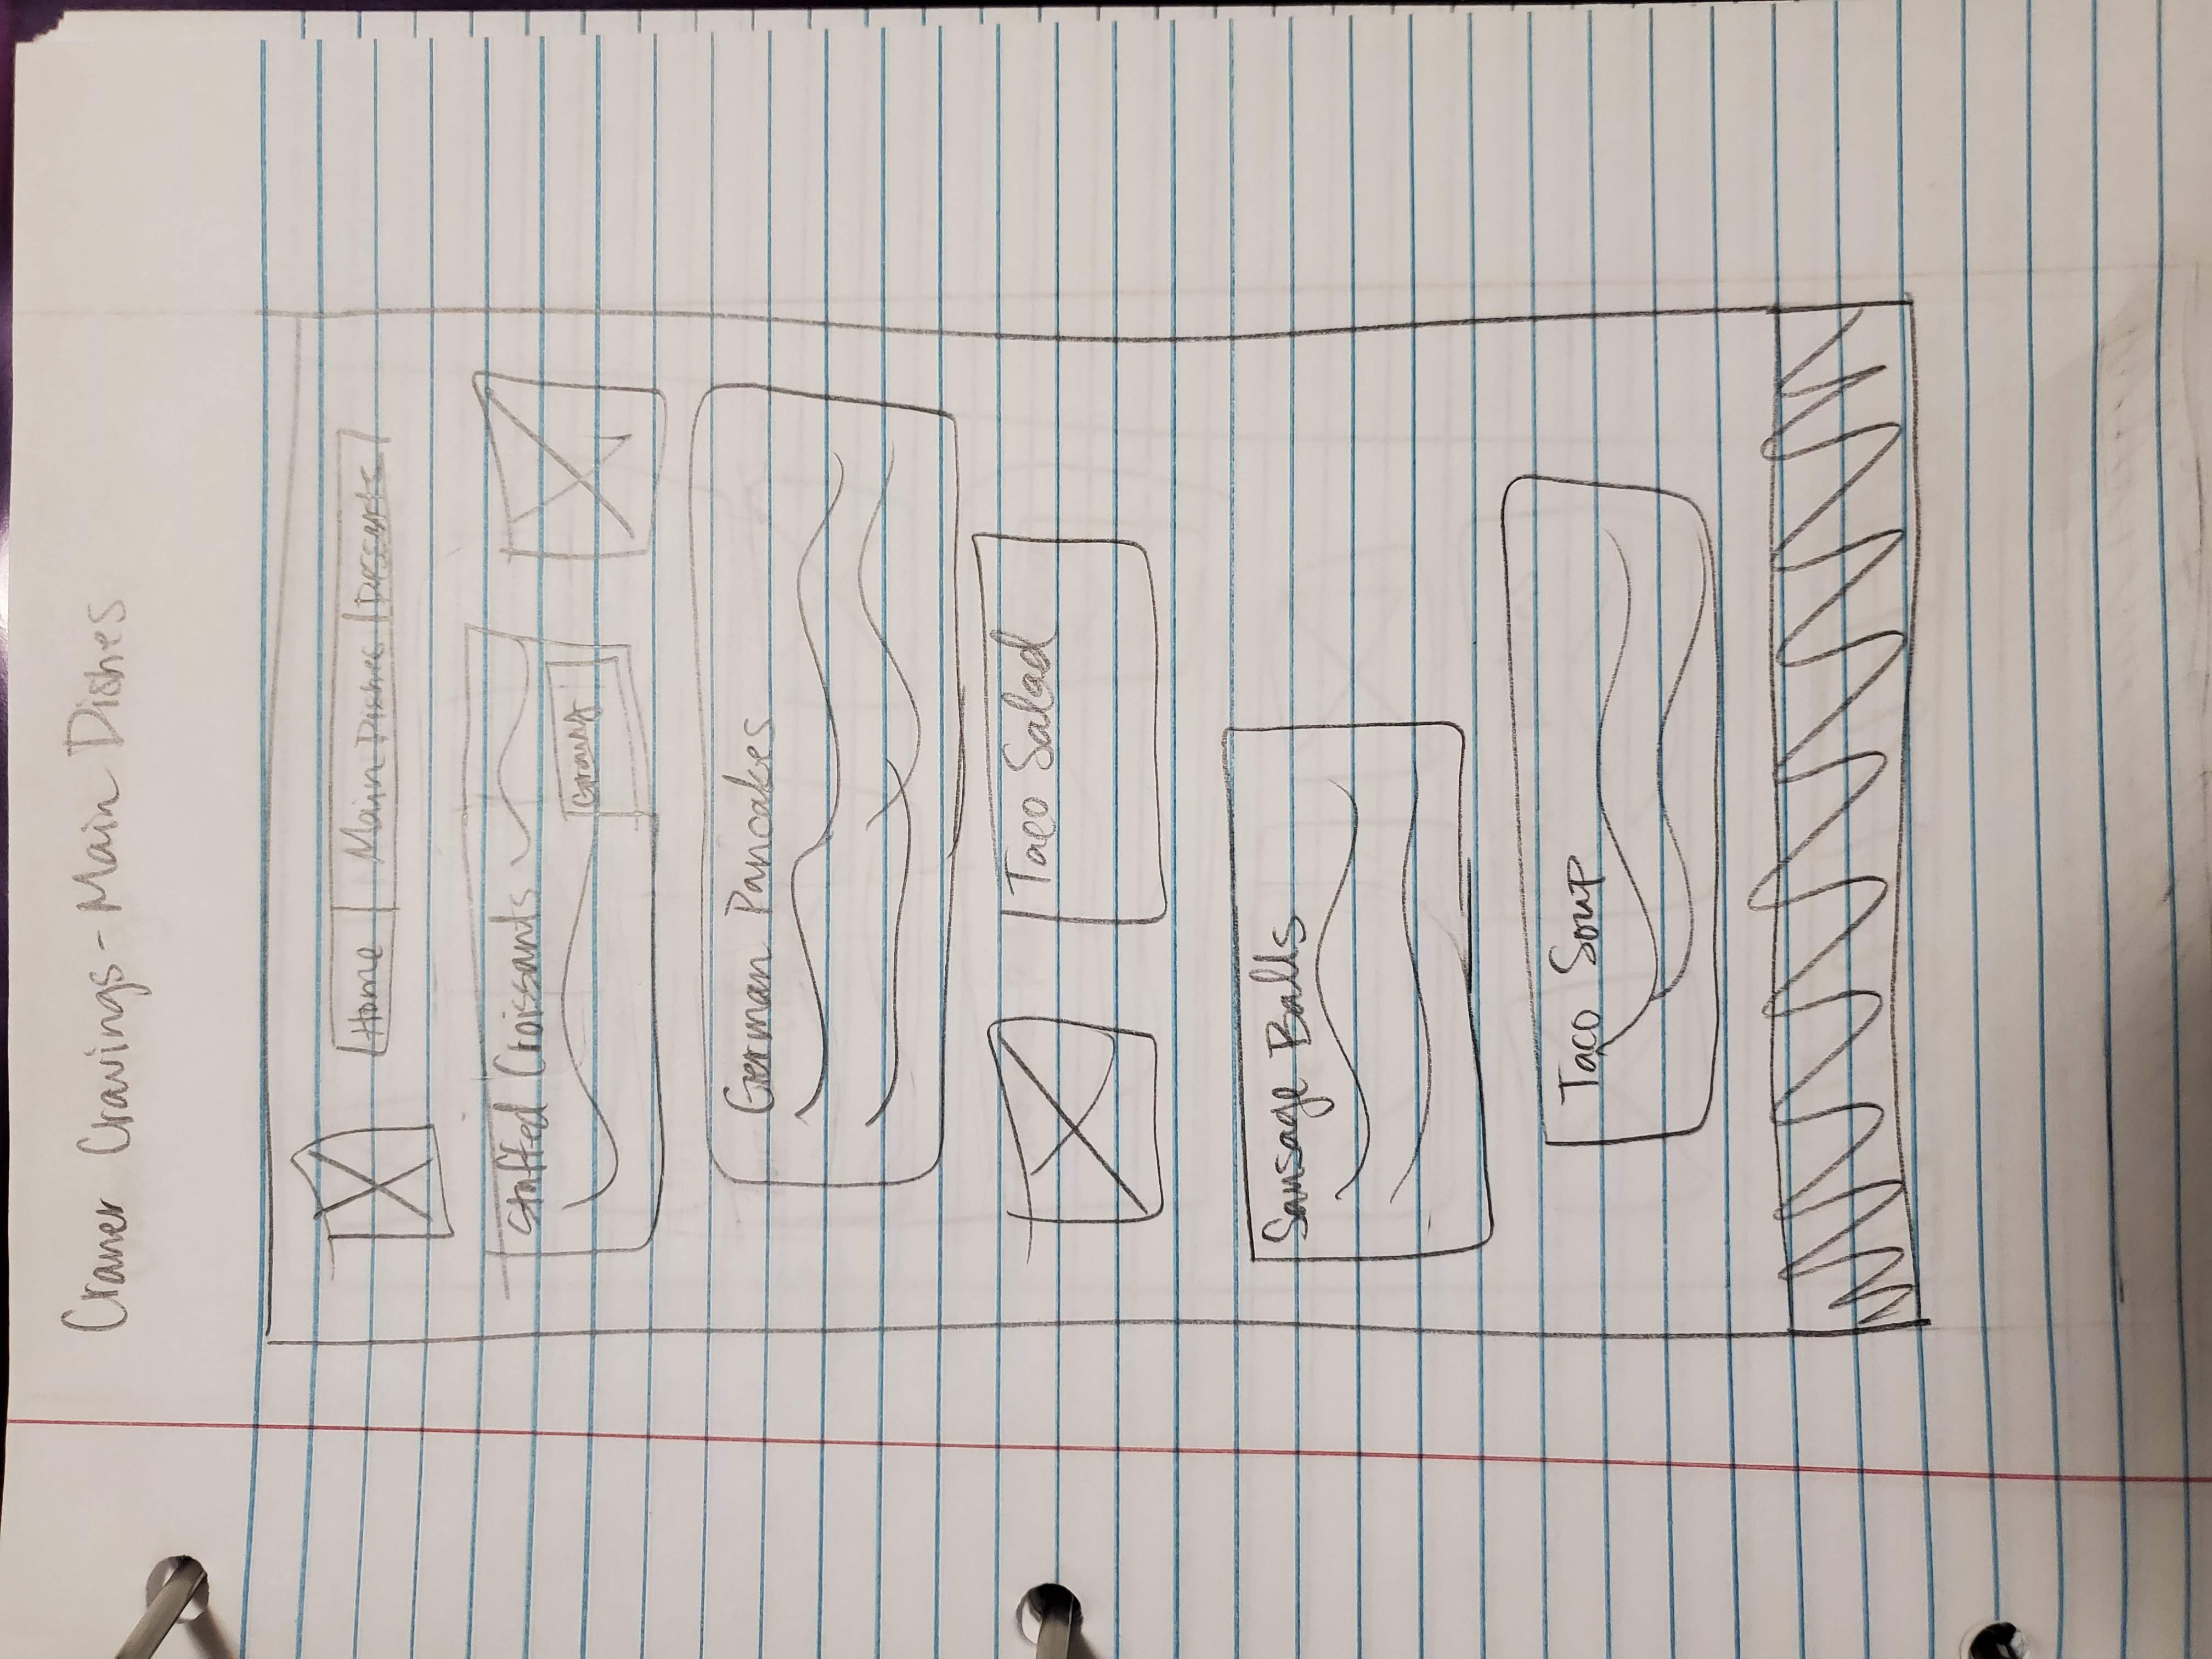 Craner Cravings - Main Dishes
Home Main Dishes Desserts
Stuffed Croissants
Gravy
German Pancakes
Taco Salad
Sausage Balls
Taco Soup